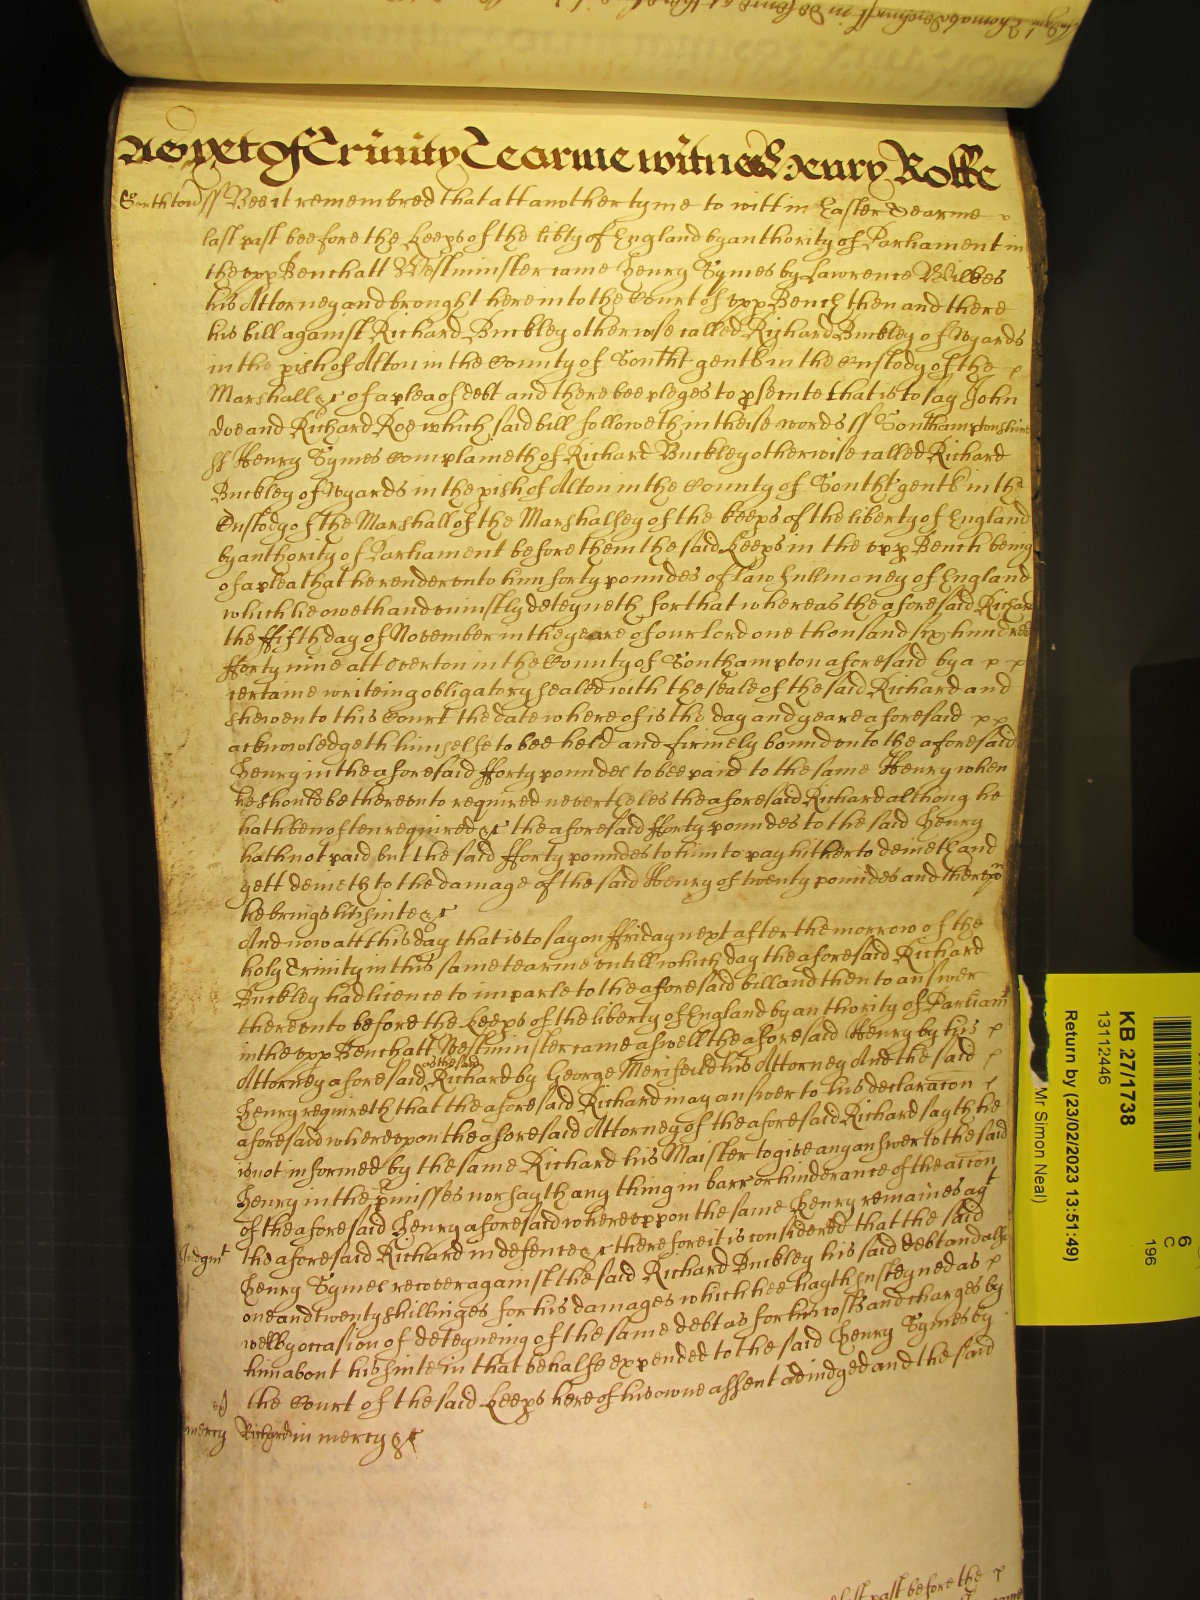 As yet of Trinity Tearme witnes Henry Rolle
Southton ss Bee it remembred that att another tyme to witt in Easter Tearme
last past beefore the Keeps of the libty of England by authority of Parliament in
the upp Bench att Westminster came Henry Symes by Lawrence Wilkes
his Attorney and brought here into the Court of upp Bench then and there
his bill against Richard Buckley otherwise called Richard Buckley of Wyards
in the pish of Alton in the County of Southt gentl in the Custody of the
Marshall &c of a plea of debt and there bee pleges to psecute that is to say John
Doe and Richard Roe which said bill followeth in theise words ss Southamptonshire
ss Henry Symes complaineth of Richard Buckley otherwise called Richard
Buckley of Wyards in the pish of Alton in the County of Southt gentl in the
Custody of the Marshall of the Marshalsey of the keeps of the liberty of England
by authority of Parliament before them the said Keeps in the upp Bench being
of a plea that he render unto him forty poundes of lawfull money of England
which he oweth and uniustly deteyneth for that whereas the aforesaid Richard
the ffifth day of November in the yeare of our lord one thousand six hundred
fforty nine att Overton in the County of Southampton aforesaid by a
certaine writeing obligatory sealed with the seale of the said Richard and
shewen to this Court the date whereof is the day and yeare aforesaid
acknowledgeth himselfe to bee held and firmely bound unto the aforesaid
Henry in the aforesaid fforty poundes to bee paid to the same Henry when
he should be thereunto required neverthelës the aforesaid Richard although he
hath ben often required &c the aforesaid fforty poundes to the said Henry
hath not paid but the said fforty poundes to him to pay hitherto denieth and
yett denieth to the damage of the said Henry of twenty poundes and thereupon
he brings his suite &c
And now att this day that is to say on ffriday next after the morrow of the
holy Trinity in this same tearme untill which day the aforesaid Richard
Buckley had licence to imparle to the aforesaid bill and then to answer
thereunto before the Keeps of the liberty of England by authority of Parliamt
in the upp Bench att Westminster came aswell the aforesaid Henry by his
Attorney aforesaid as the said Richard by George Merifeild his Attorney And the said
Henry requireth that the aforesaid Richard may answer to his declaracon
aforesaid whereupon the aforesaid Attorney of the aforesaid Richard sayth he
is not informed by the same Richard his Maister to give any answer to the said
Henry in the pmisses nor sayth any thing in barr or hinderance of the accon
of the aforesaid Henry aforesaid whereuppon the same Henry remaines agt
Judgmt the aforesaid Richard in defence &c therefore it is considered that the said
Henry Symes recover against the said Richard Buckley his said debt and also
one and twenty shillinges for his damages which hee hayth susteyned as
well by occasion of deteyneing of the same debt as for his costs and charges by
him about his suite in that behalfe expended to the said Henry Symes by
the Court of the said Keeps here of his owne assent adiudged and the said
mercy Richard in mercy &c
last past before the
KB 27/1738
13112446
Return by (23/02/2023 13:51:49)
Mr Simon Neal)
6
C
196